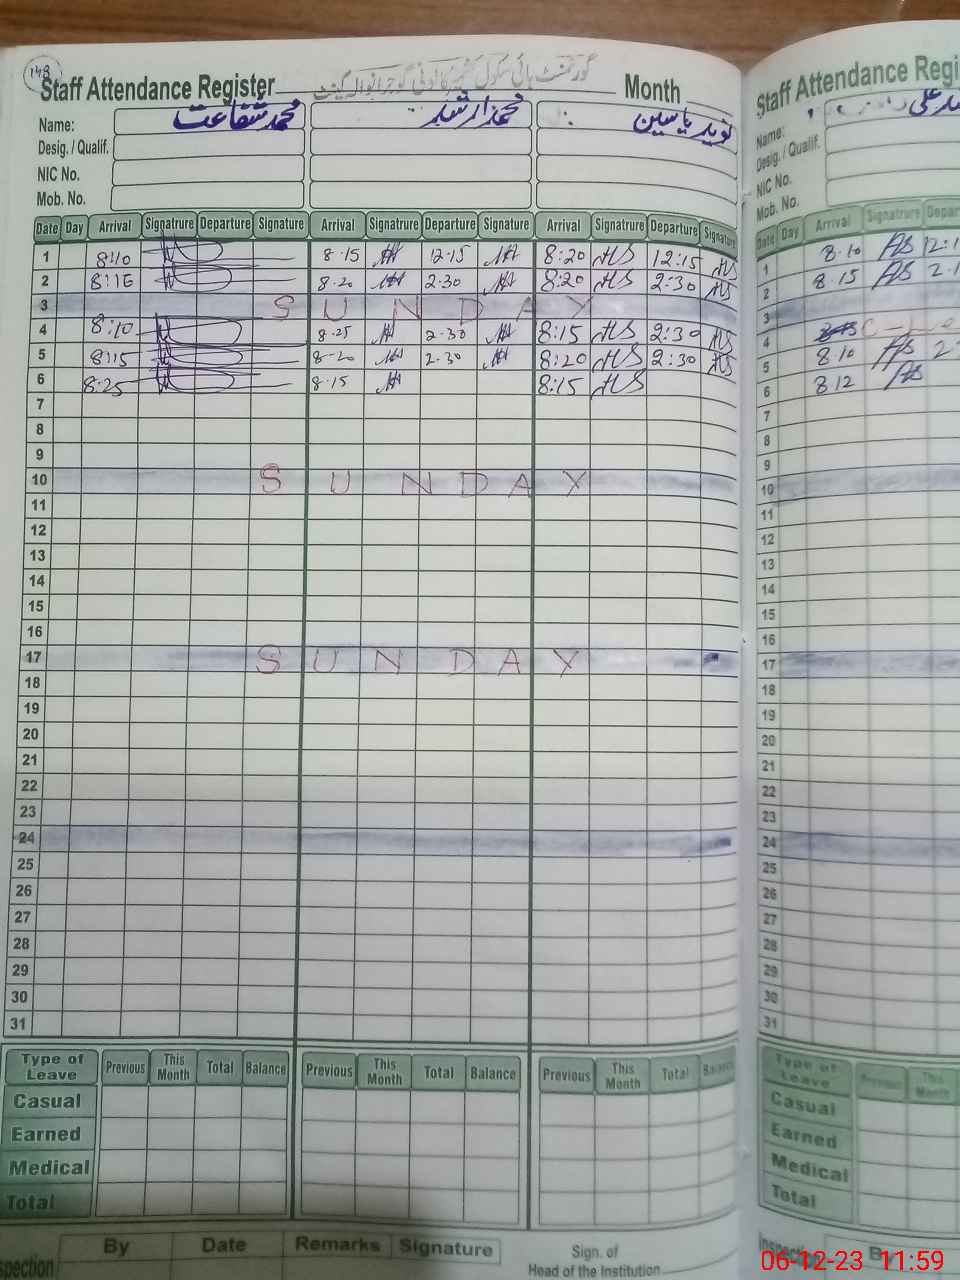 148
Staff Attendance Register گورنمنٹ ہائی سکول کالونی گوجرانوالہ کینٹ Month
Name: محمد شفاعت محمد ارشد نوید یاسین
Desig. / Qualif.
NIC No.
Mob. No.
Date Day Arrival Signatrure Departure Signature Arrival Signatrure Departure Signature Arrival Signatrure Departure Signature
1 8:10 8.15 12.15 8:20 12:15
2 8:15 8.20 2.30 8:20 2:30
3 SUNDAY
4 8:10 8.25 2.30 8:15 2:30
5 8:15 8.20 2.30 8:20 2:30
6 8:25 8.15 8:15
7
8
9
10 SUNDAY
11
12
13
14
15
16
17 SUNDAY
18
19
20
21
22
23
24
25
26
27
28
29
30
31
Type of Leave Previous This Month Total Balance Previous This Month Total Balance Previous This Month Total Balance
Casual
Earned
Medical
Total
spection By Date Remarks Signature Sign. of
Head of the Institution
Staff Attendance Regi
Name: علی
Desig. / Qualif.
NIC No.
Mob. No.
Date Day Arrival Signatrure Depar
1 8.10 12:1
2 8.15 2.1
3
4
5 8.10 2
6 8.12
7
8
9
10
11
12
13
14
15
16
17
18
19
20
21
22
23
24
25
26
27
28
29
30
31
Type of Leave Previous This Month
Casual
Earned
Medical
Total
Inspection B
06-12-23 11:59